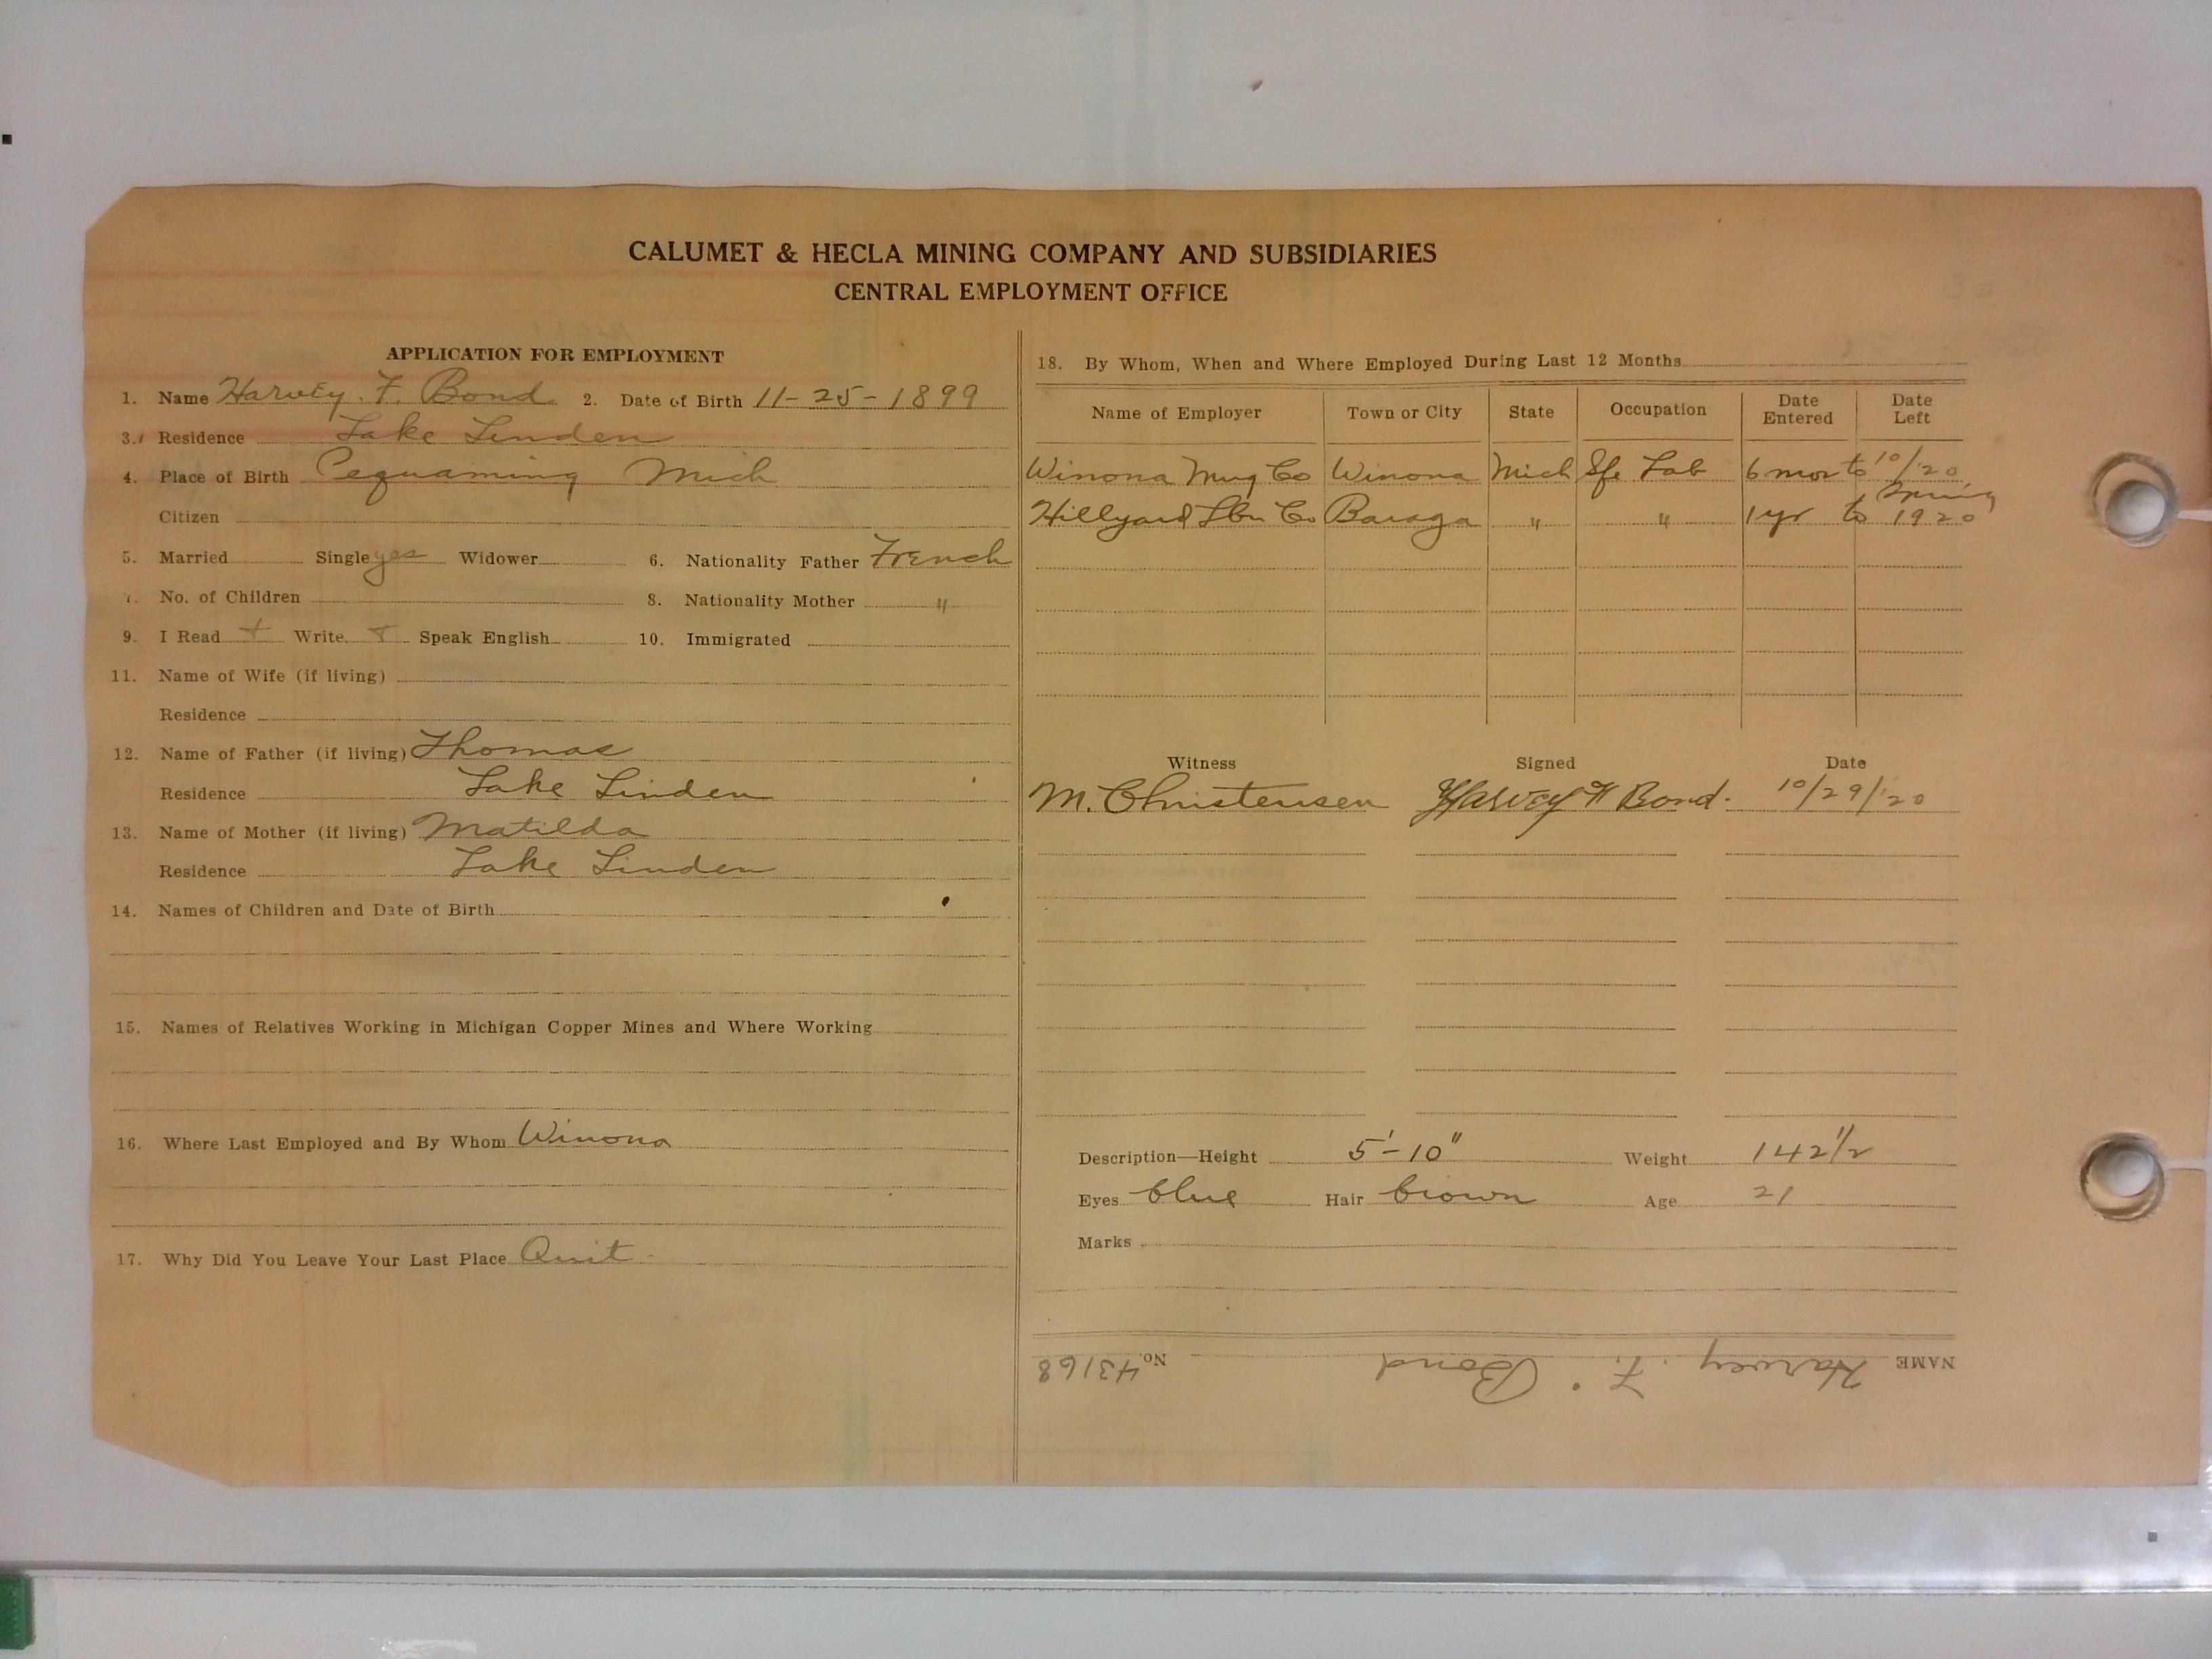 CALUMET & HECLA MINING COMPANY AND SUBSIDIARIES
CENTRAL EMPLOYMENT OFFICE
APPLICATION FOR EMPLOYMENT
1. Name Harvey. F. Bond. 2. Date of Birth 11-25-1899
3. Residence Lake Linden
4. Place of Birth Pequaming Mich
Citizen
5. Married Single yes Widower 6. Nationality Father French
7. No. of Children 8. Nationality Mother "
9. I Read + Write + Speak English 10. Immigrated
11. Name of Wife (if living)
Residence
12. Name of Father (if living) Thomas
Residence Lake Linden
13. Name of Mother (if living) Matilda
Residence Lake Linden
14. Names of Children and Date of Birth
15. Names of Relatives Working in Michigan Copper Mines and Where Working
16. Where Last Employed and By Whom Winona
17. Why Did You Leave Your Last Place Quit
18. By Whom, When and Where Employed During Last 12 Months
Name of Employer Town or City State Occupation Date Entered Date Left
Winona Mng Co Winona Mich Sfc Lab 6 mos to 10/20
Hillyard Lbr Co Baraga " " 1 yr to Spring 1920
Witness Signed Date
M. Christensen Harvey F Bond. 10/29/20
Description—Height 5'-10" Weight 142 1/2
Eyes blue Hair brown Age 21
Marks
NAME Harvey F. Bond No. 43168